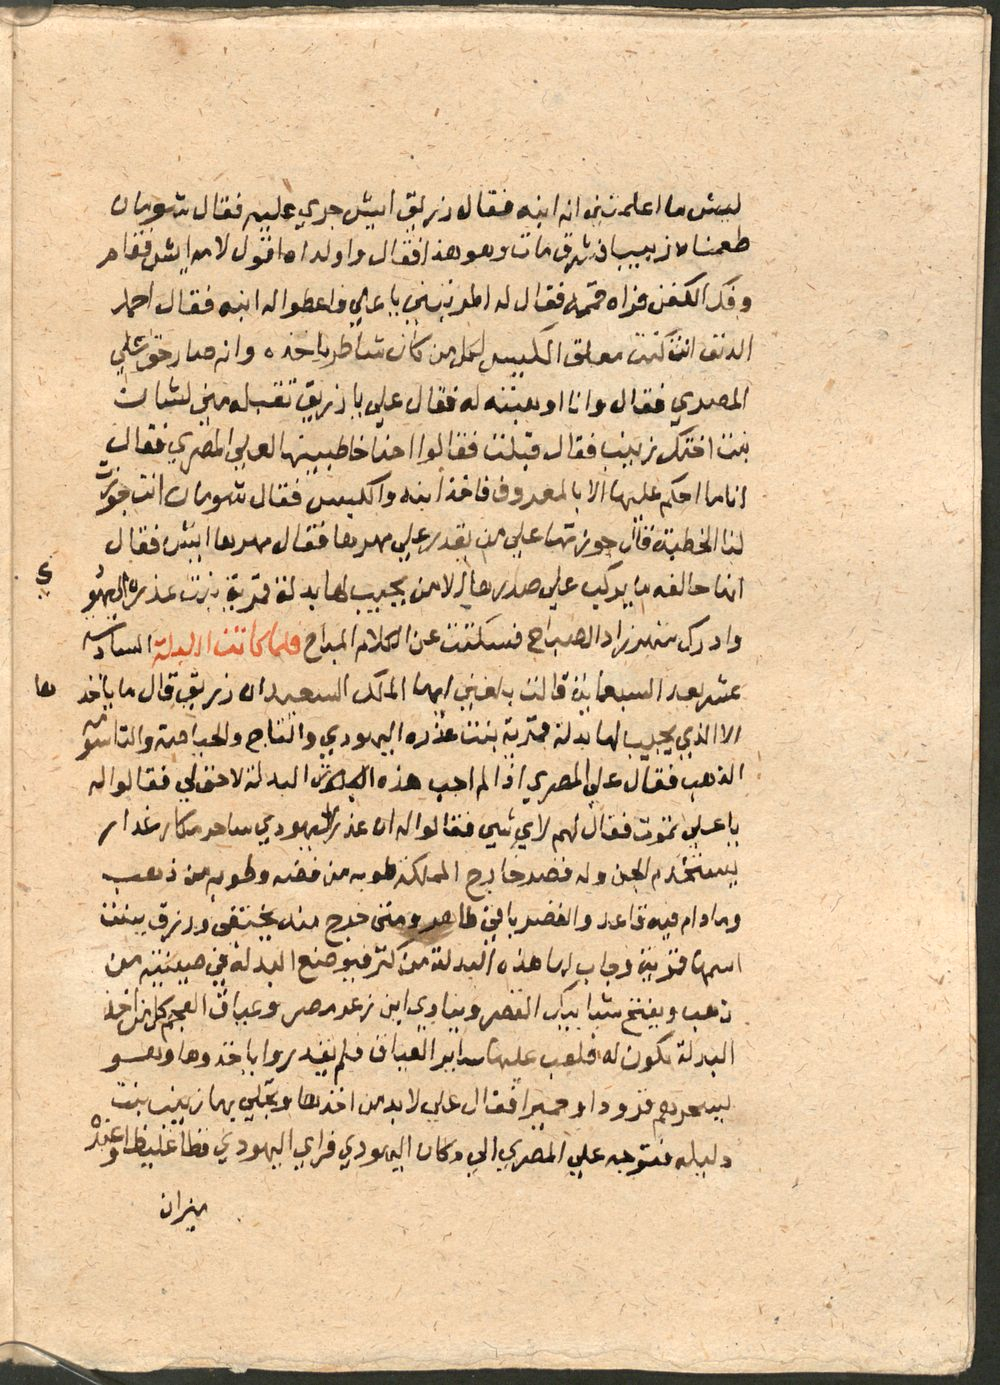 ليش ما اعلمتني انه ابنه فقال زريق ايش جري عليه فقال شومان
طعمناه زبيب شرق مات وهو هذا فقال واولداه اقول لامه ايش فقام
وفك الكفن فراه قمه فقال له اطربتني يا علي فاعطوا له ابنه فقال احمد
الدنف انت كنت معلق الكيس لكل من كان شاطر ياخذه وانه صار حق علي
المصري فقال وانا اوهبته له فقال علي يا زريق تقبله مني لشان
بنت اختك زينب فقال قبلت فقالوا احنا خاطبينها لعلي المصري فقال
انا ما احكم عليها الا بالمعروف فاخذ ابنه والكيس فقال شومان انت جوزت
لنا الخطبة قال جوزتها علي من يقدر علي مهرها فقال مهرها ايش فقال
انها حالفه ما يركب علي صدرها الا من يجيب لها بدلة قمرية بنت عذره اليهو
دي
وادرك شهرزاد الصباح فسكتت عن الكلام المباح فلما كانت الليلة السادسه
عشر بعد السبعماية قالت بلغني ايها الملك السعيد ان زريق قال ما ياخد
ها
الا الذي يجيب لها بدلة قمرية بنت عذره اليهودي والتاج والحياصة والتاسومه
الذهب فقال علي المصري اذا لم اجب هذه البدلة لا حق لي فقالوا له
يا علي تموت فقال لهم لاي شي فقالوا له ان عذره اليهودي ساحر مكار غدار
يستخدم الجن وله قصر خارج المملكة طوبه من فضه وطوبه من ذهب
وما دام فيه قاعد والقصر باقي ظاهر ومتي خرج منه يختفي ورزق ببنت
اسمها قمرية وجاب لها هذه البدلة من كنز فيوضع البدلة في صينية من
ذهب ويفتح شبابيك القصر وينادي اين زعر مصر وعياق العجم كل من اخذ
البدلة تكون له فلعب عليها ساير العياق فلم يقدروا ياخذوها وهو
يسحرهم قرودا وحميرا فقال علي لابد من اخذها وتجلي بها زينب بنت
دليله فتوجه علي المصري الي دكان اليهودي فراي اليهودي فظا غليظا وعنده
ميزان